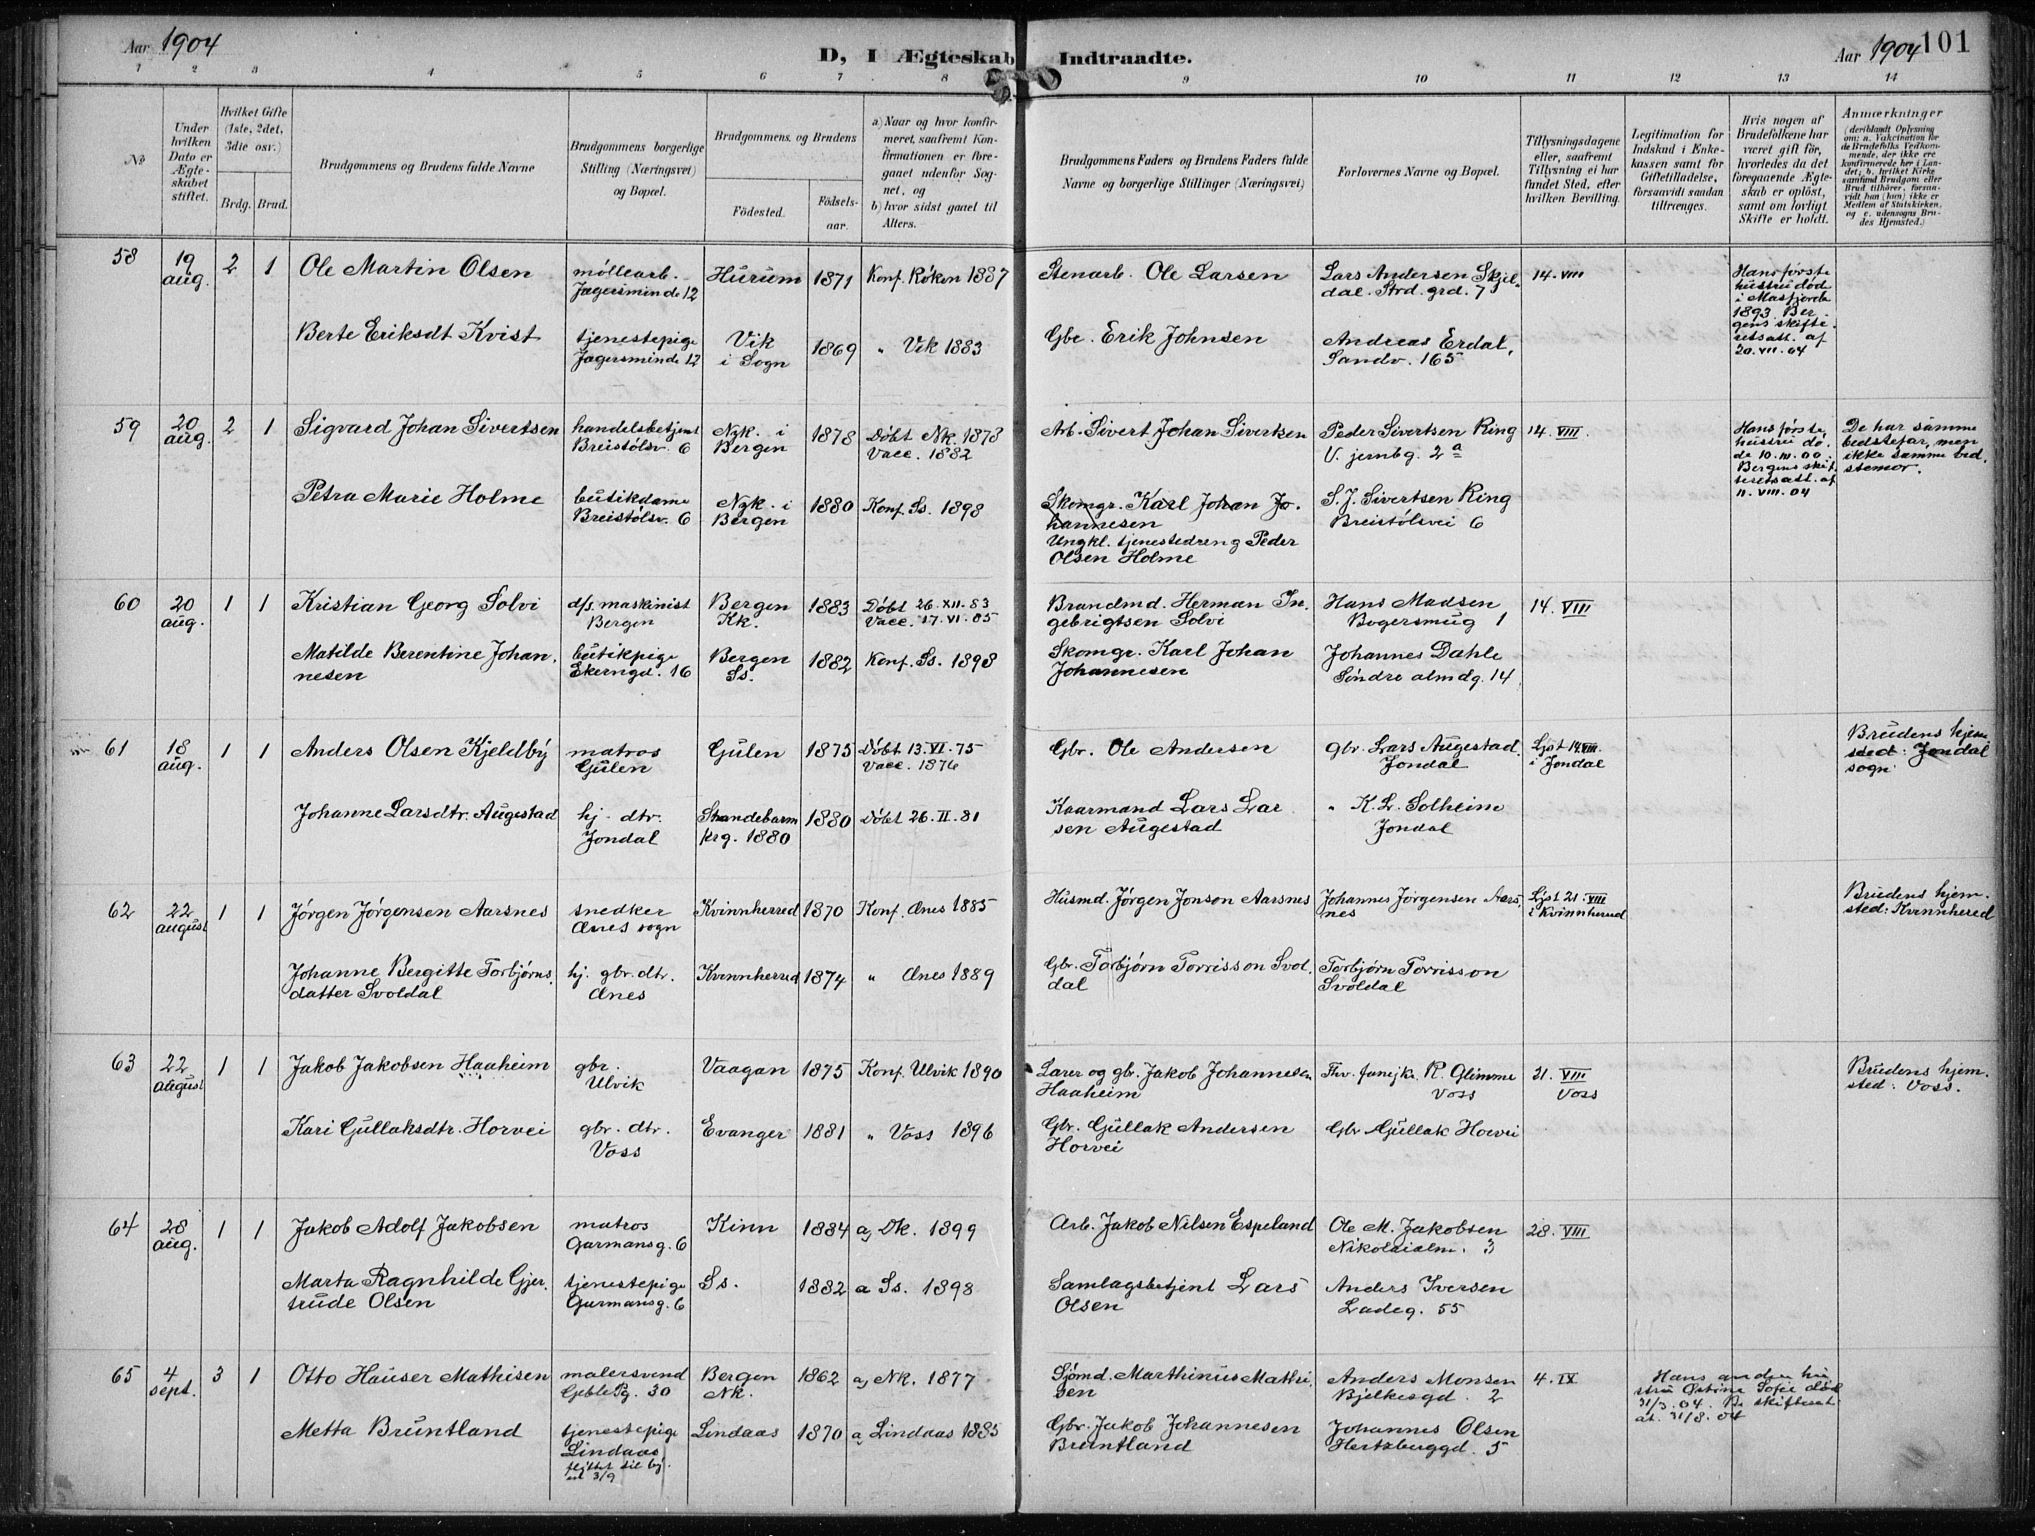 Aar 1904
D, I Ægteskab Indtraadte.
Aar 1904 101
1 2 3 4 5 6 7 8 9 10 11 12 13 14
No
Under hvilken Dato er Ægteskabet stiftet.
Hvilket Gifte (1ste, 2det, 3die osv.)
Brdg. Brud.
Brudgommens og Brudens fulde Navne
Brudgommens borgerlige Stilling (Næringsvei) og Bopæl.
Brudgommens og Brudens
Fødested.
Fødselsaar.
a) Naar og hvor konfirmeret, saafremt Konfirmationen er foregaaet udenfor Sognet, og
b) hvor sidst gaaet til Alters.
Brudgommens Faders og Brudens Faders fulde Navne og borgerlige Stillinger (Næringsvei)
Forlovernes Navne og Bopæl.
Tillysningsdagene eller, saafremt Tillysning ei har fundet Sted, efter hvilken Bevilling.
Legitimation for Indskud i Enkekassen samt for Giftetilladelse, forsaavidt saadan tiltrænges.
Hvis nogen af Brudefolkene har været gift før, hvorledes da det foregaaende Ægteskab er opløst, samt om lovligt Skifte er holdt.
Anmærkninger
(deriblandt Oplysning om: a. Vakcination for de Brudefolks Vedkommende, der ikke ere konfirmerede her i Landet; b. hvilket Kirkesamfund Brudgom eller Brud tilhører, forsaavidt han (hun) ikke er Medlem af Statskirken, og c. udensogns Brudes Hjemsted.)
58 19 aug. 2 1 Ole Martin Olsen
møllearb. Jægersminde 12
Hurum 1871 Konf. Røken 1887
Stenarb. Ole Larsen
Lars Andersen Skjeldal. Strd. grd. 7
14. VIII
Hans første hustru død i Masfjorden 1893. Bergens skifteretsatt. af 20. VII. 04
Berte Eriksdt Kvist
tjenestepige Jægersminde 12
Vik i Sogn 1869 " Vik 1883
Gbr. Erik Johnsen
Andreas Erdal, Sandv. 165
59 20 aug. 2 1 Sigvard Johan Sivertsen
handelsbetjent Breistølsv. 6
Nyk. i Bergen 1878 Døbt Nk. 1878 Vacc. 1882
Arb. Sivert Johan Sivertsen
Peder Sivertsen Ring V. jernbg. 2a
14. VIII.
Hans første hustru døde 10. IV. 00. Bergens skifteretsatt. af 11. VIII. 04
De har samme bedstefar, men ikke samme bedstemor.
Petra Marie Holme
butikdame Breistølsv. 6
Nyk. i Bergen 1880 Konf. Ss. 1898
Skomgr. Karl Johan Johannesen
Ungkl. tjenestedreng Peder Olsen Holme
S. J. Sivertsen Ring Breistølsvei 6
60 20 aug. 1 1 Kristian Georg Solvi
d/s. maskinist Bergen
Bergen Kk. 1883 Døbt 26. XII. 83 Vacc. 17. VI. 85
Brandmd. Herman Ingebrigtsen Solvi
Hans Madsen Bogersmug 1
14. VIII
Matilde Berentine Johannesen
butikpige Ekerngd. 16
Bergen Ss. 1882 Konf. Ss. 1898
Skomgr. Karl Johan Johannesen
Johannes Dahle Søndre almdg. 14
61 18 aug. 1 1 Anders Olsen Kjeldby
matros Gulen
Gulen 1875 Døbt 13. VI. 75 Vacc. 1876
Gbr. Ole Andersen
gbr. Lars Augestad. Jondal
Lyst 14. VIII. i Jondal
Brudens hjemsted: Jondal sogn
Johanne Larsdtr. Augestad
hj. dtr. Jondal
Strandebarm prg. 1880 1880 Døbt 26. II. 81
Kaarmand Lars Larsen Augestad
" K. L. Solheim Jondal
62 22 august 1 1 Jørgen Jørgensen Aarsnes
snedker Ænes sogn
Kvinnherred 1870 Konf. Ænes 1885
Husmd. Jørgen Jonson Aarsnes
Johannes Jørgensen Aarsnes
Lyst 21. VIII i Kvinnherred
Brudens hjemsted: Kvinnhered
Johanne Bergitte Torbjørnsdatter Svoldal
hj. gbr. dtr. Ænes
Kvinnherred 1874 " Ænes 1889
Gbr. Torbjørn Torrisson Svoldal
Torbjørn Torrisson Svoldal
63 22 august 1 1 Jakob Jakobsen Haaheim
gbr. Ulvik
Vaagan 1875 Konf. Ulvik 1890
Lærer og gbr. Jakob Johannesen Haaheim
R. Glimme Voss
21. VIII Voss
Brudens hjemsted: Voss.
Kari Gullaksdtr. Horvei
gbr. dtr. Voss
Evanger 1881 " Voss 1896
Gbr. Gullak Andersen Horvei
Gbr Gullak Horvei
64 28 aug. 1 1 Jakob Adolf Jakobsen
matros Garmansg. 6
Kinn 1884 a, Dk. 1899
Arb. Jakob Nilsen Espeland
Ole M. Jakobsen Nikolaialm. 3
28. VIII
Marta Ragnhilde Gjertrude Olsen
tjenestepige Garmansg. 6
Ss. 1882 a Ss. 1898
Samlagsbetjent Lars Olsen
Anders Iversen Ladeg. 55
65 4 sept. 3 1 Otto Hauser Mathisen
malersvend Geble Pg. 30
Bergen Nk. 1862 a, Nk. 1877
Sjømd. Marthinus Mathisen
Anders Monsen Bjelkesgd. 2
4. IX
Hans anden hustru Østine Sofie død 31/3. 04. B. skifteratt. 31/8. 04
Metta Bruntland
tjenestepige Lindaas flyttet til by
3/9
Lindaas 1870 a, Lindaas 1885
Gbr. Jakob Johannesen Bruntland
Johannes Olsen Hertzbuggd. 5